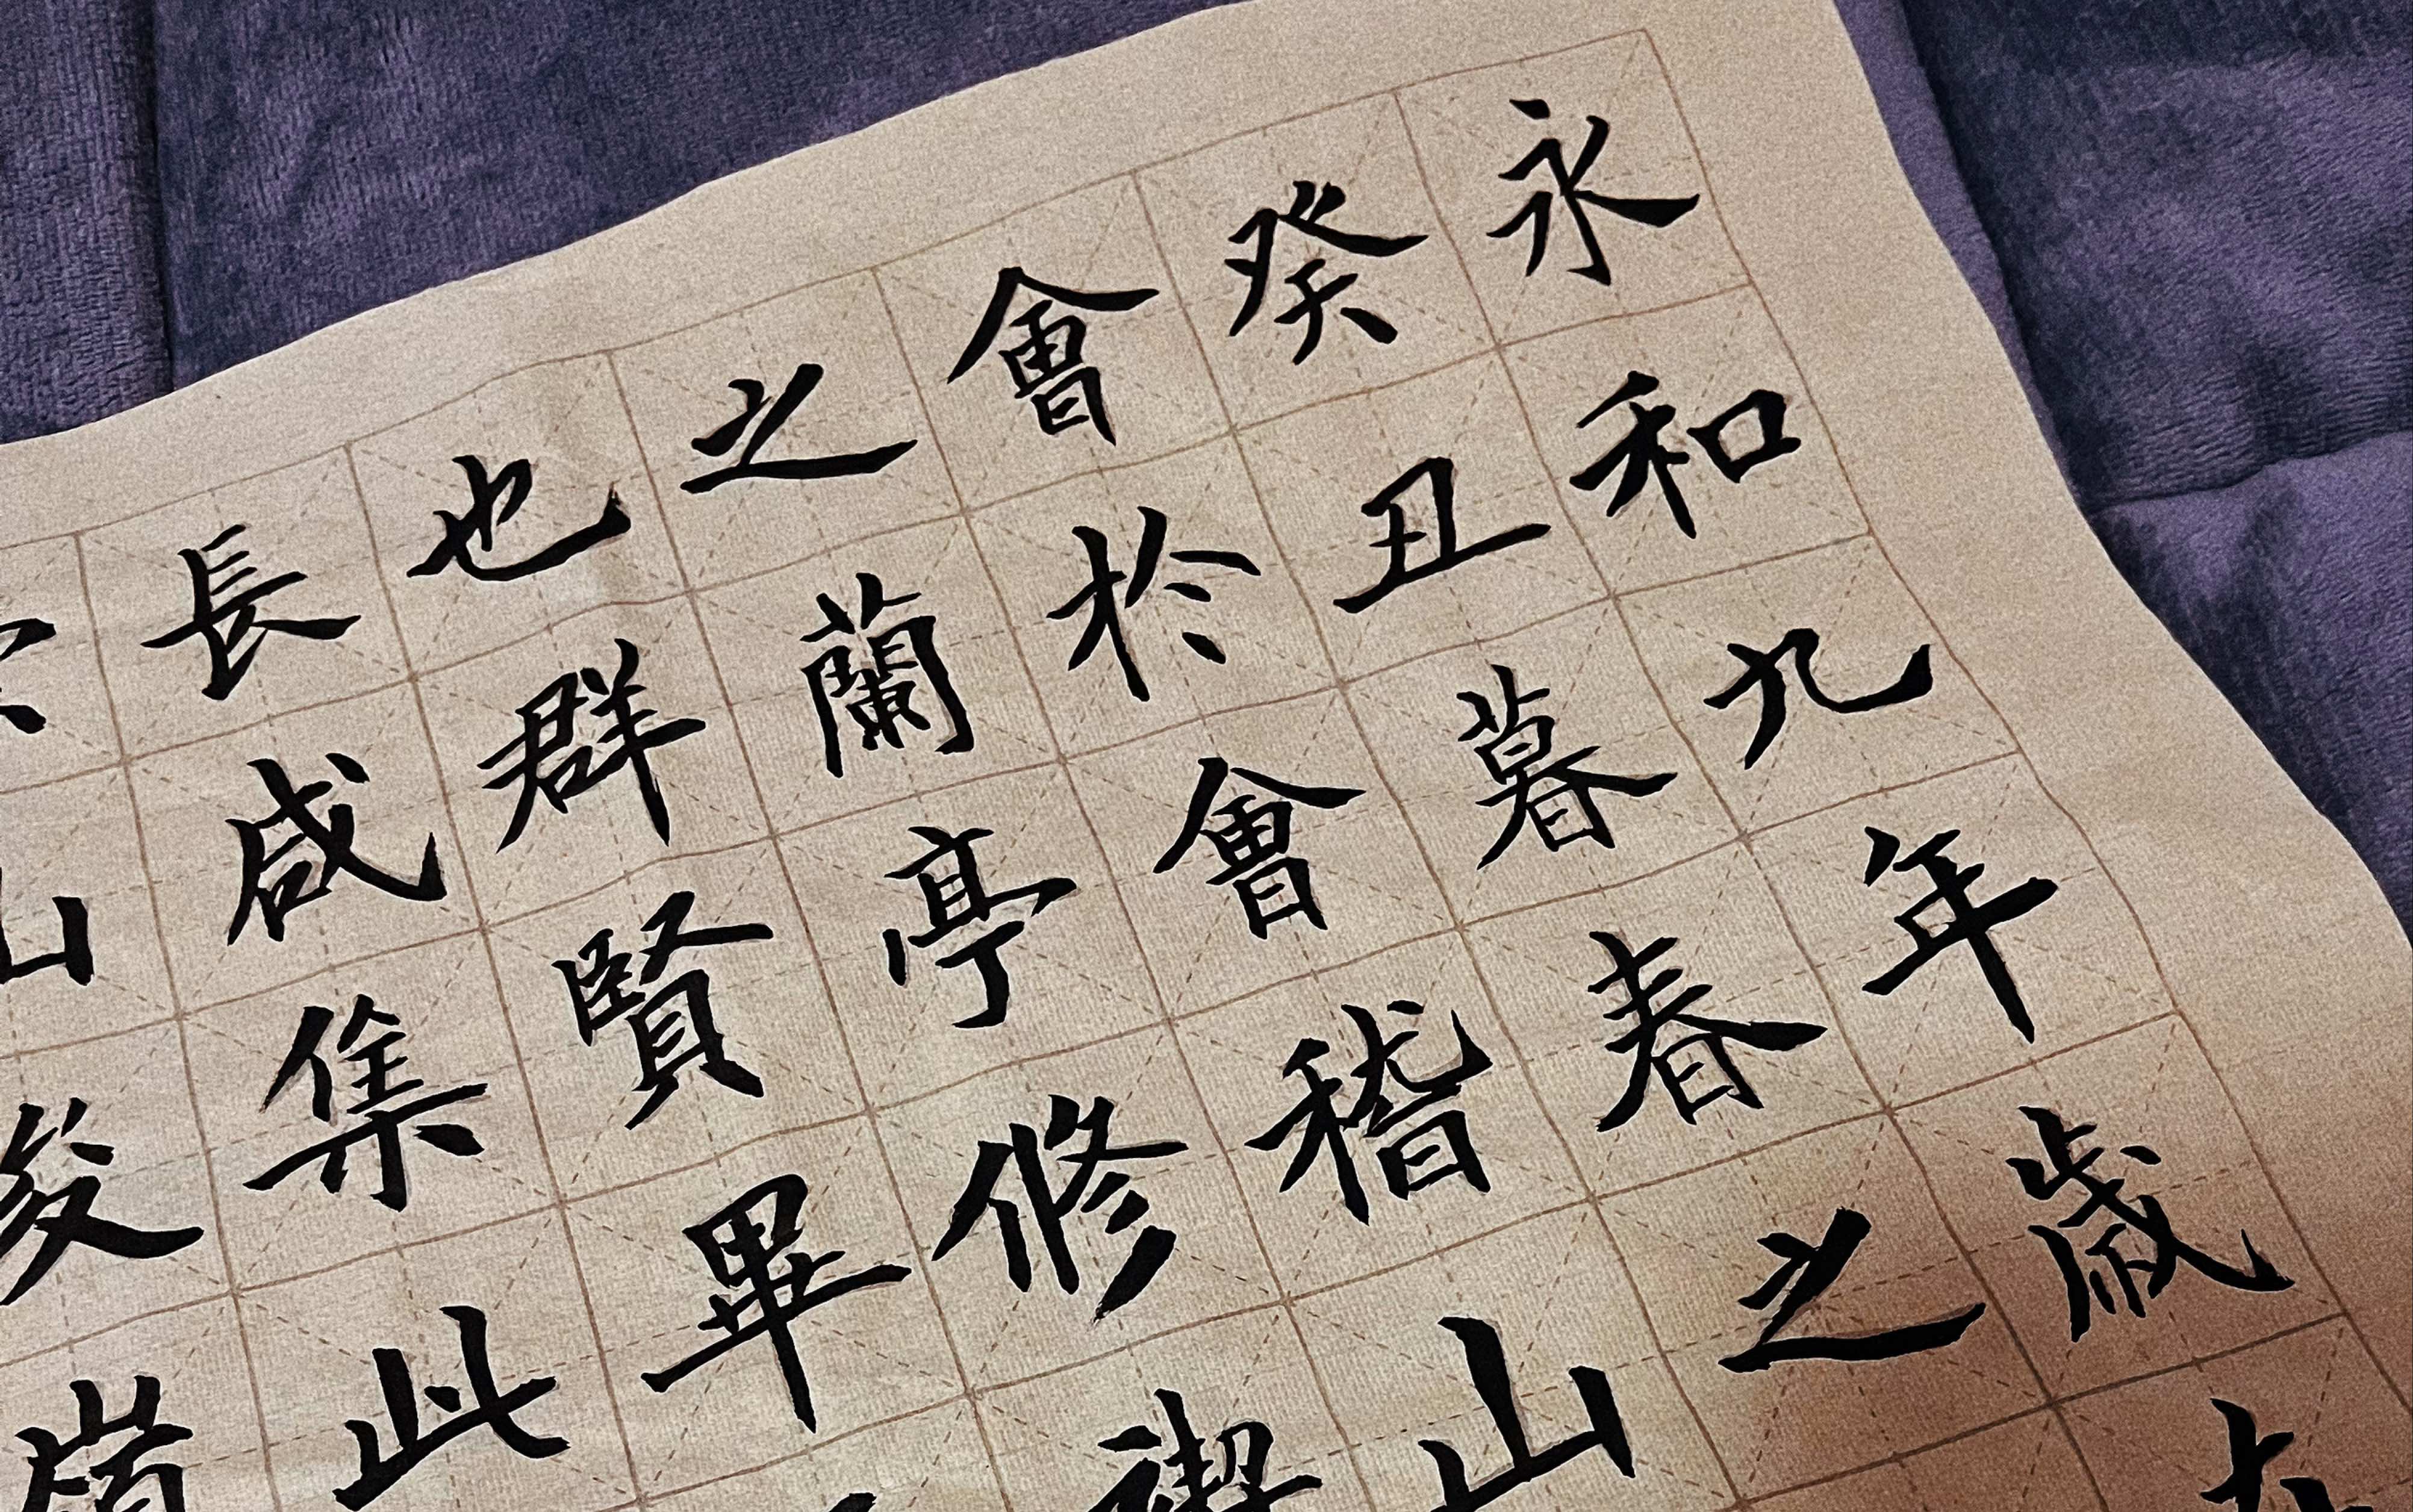 永和九年歲在
癸丑暮春之
會於會稽山
之蘭亭修禊
也群賢畢
長咸集此
山峻嶺